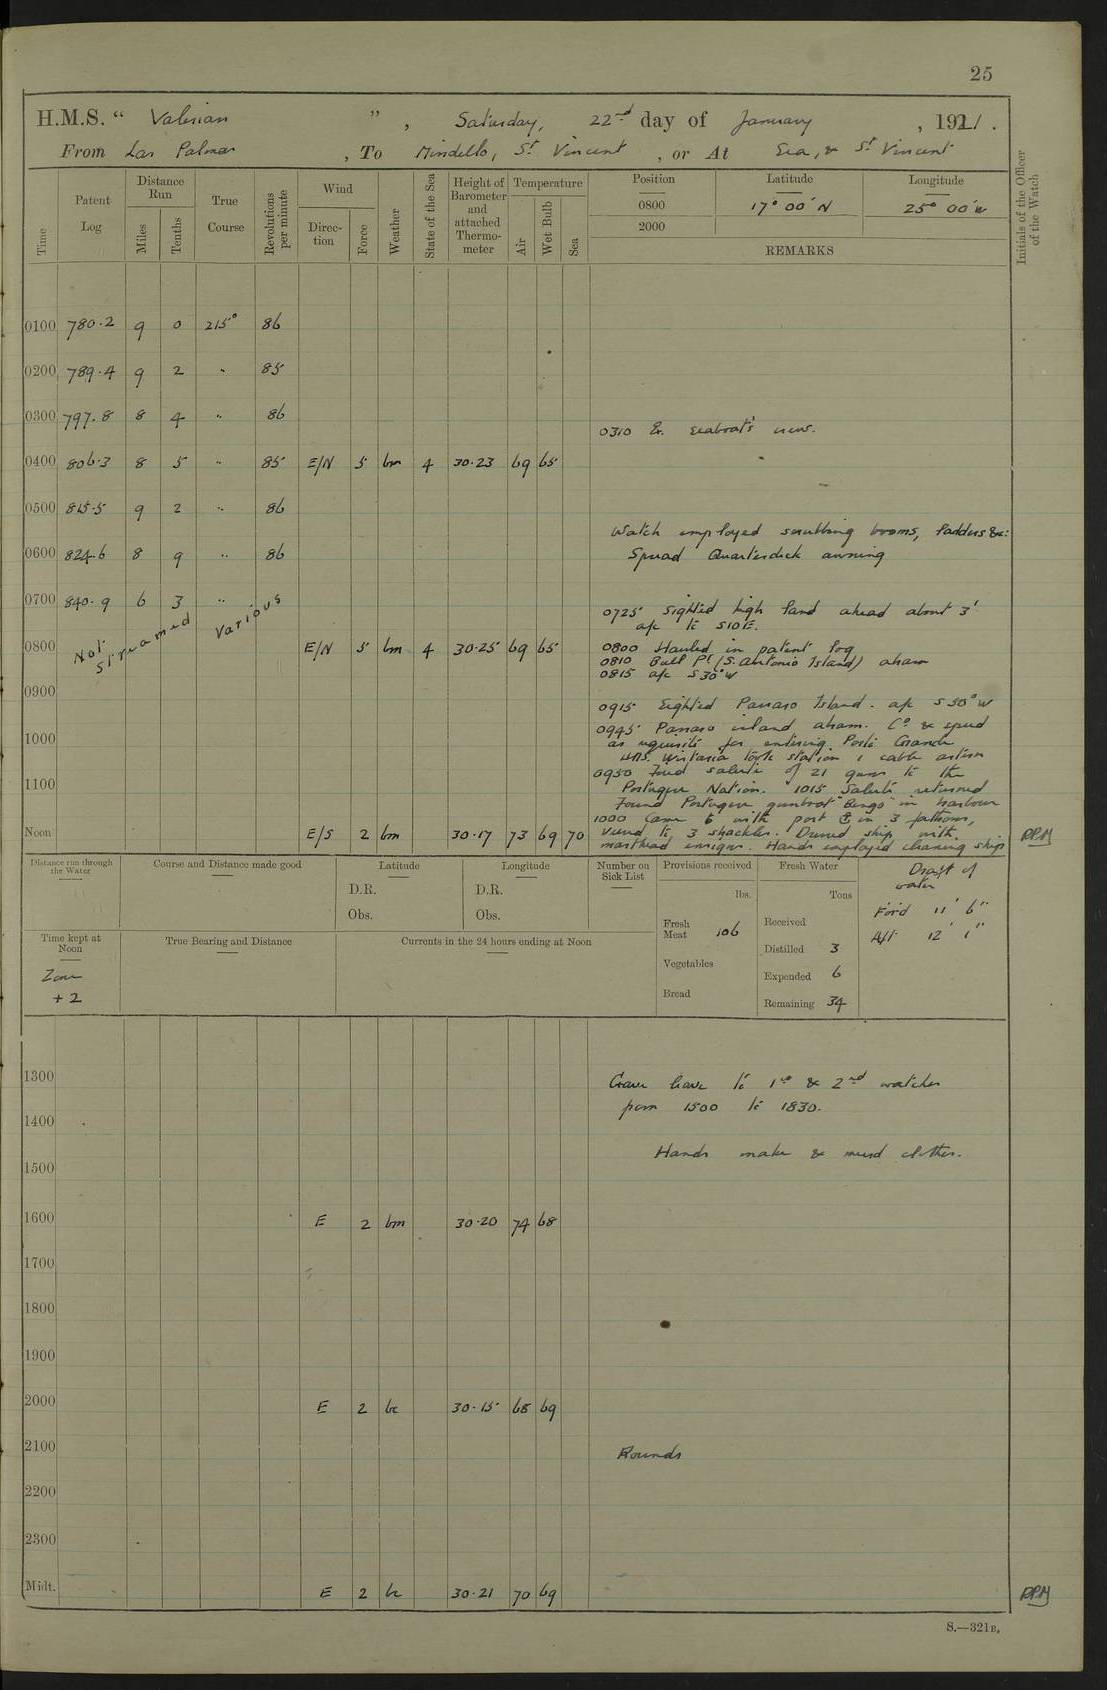 25
H.M.S. “ Valerian ” , Saturday, 22nd day of January , 1921 .
From Las Palmas , To Mindello, St Vincent , or At Sea, & St Vincent
Time
Patent Log
Distance Run
Miles
Tenths
True Course
Revolutions per minute
Wind
Direc-tion
Force
Weather
State of the Sea
Height of Barometer and attached Thermo-meter
Temperature
Air
Wet Bulb
Sea
Position
Latitude
Longitude
0800 17° 00' N 25° 00' W
2000
REMARKS
Initials of the Officer of the Watch
0100 780.2 9 0 215° 86
0200 789.4 9 2 " 85
0300 797.8 8 4 " 86
0310 Ex. seaboat's crew.
0400 806.3 8 5 " 85 E/N 5 bm 4 30.23 69 65
0500 815.5 9 2 " 86
Watch employed scrubbing brooms, ladders &c:
0600 824.6 8 9 " 86
Spread Quarterdeck awning
0700 840.9 6 3 "
Not Streamed
Various
0725 Sighted high land ahead about 3'
a/c to S10E.
0800 E/N 5 bm 4 30.25 69 65
0800 Hauled in patent log
0810 Bull Pt (S. Antonio Island) abeam
0815 a/c S30°W
0900
0915 Sighted Passaro Island. a/c S50°W
0945 Passaro island abeam. Co & speed
1000
as requisite for entering Porto Grande
H.M.S. Wistaria took station 1 cable astern
0950 Fired salute of 21 guns to the
1100
Portuguese Nation. 1015 Salute returned
Found Portuguese gunboat "Bengo" in harbour
1000 Came to with port ⚓ in 3 fathoms,
Noon E/S 2 bm 30.17 73 69 70
veered to 3 shackles. Dressed ship with
masthead ensigns. Hands employed cleaning ship
RPM
Distance run through the Water
Course and Distance made good
Latitude
D.R.
Obs.
Longitude
D.R.
Obs.
Number on Sick List
Provisions received
lbs.
Fresh Meat 106
Vegetables
Bread
Fresh Water
Tons
Received
Distilled 3
Expended 6
Remaining 34
Draft of water
For'd 11' 6"
Aft 12' 1"
Time kept at Noon
Zone
+ 2
True Bearing and Distance
Currents in the 24 hours ending at Noon
1300
Gave leave to 1st & 2nd watches
1400
from 1500 to 1830.
Hands make & mend clothes.
1500
1600 E 2 bm 30.20 74 68
1700
1800
1900
2000 E 2 bc 30.15 68 69
2100
Rounds
2200
2300
Midt. E 2 bc 30.21 70 69
RPM
S.—321B.